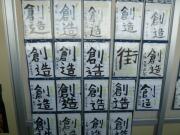 創造 創造 創造 創造 創造
創造 創造 創造 街 創造
創造 創造 創造 創造 創造
創造 創造 創造